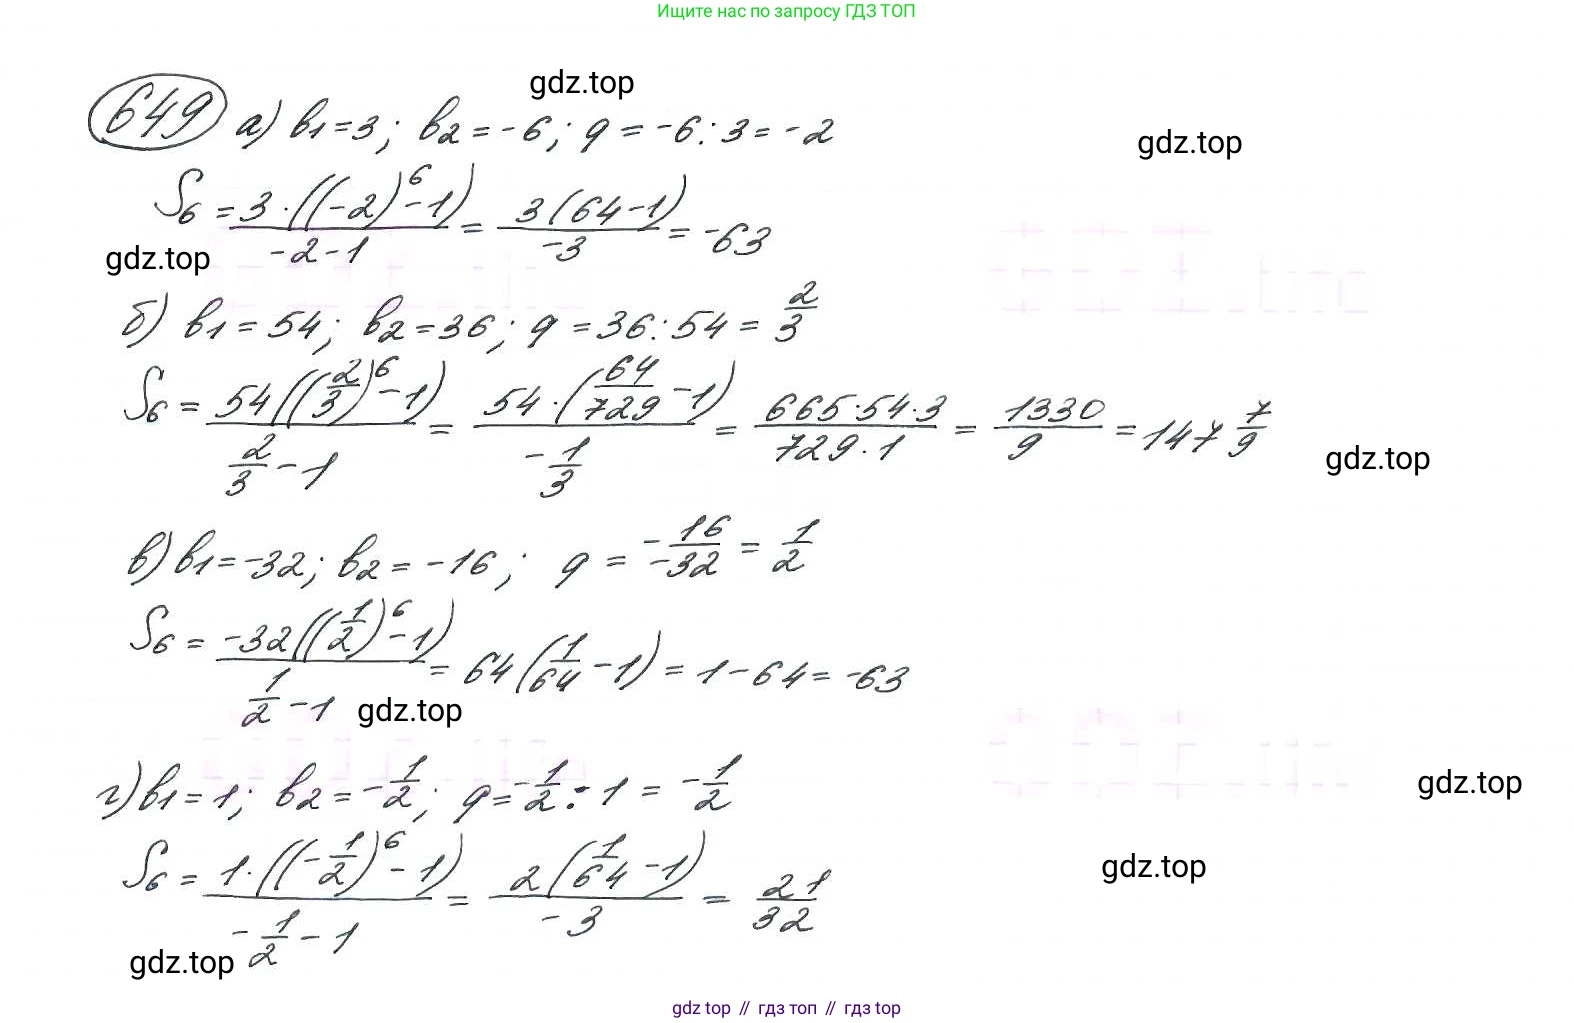 Ищите нас по запросу ГДЗ ТОП
gdz.top
649 а) b₁=3; b₂=-6; q=-6:3=-2
gdz.top
S₆ = (3·((-2)⁶-1))/(-2-1) = (3(64-1))/(-3) = -63
gdz.top
б) b₁=54; b₂=36; q=36:54=2/3
S₆ = (54((2/3)⁶-1))/(2/3-1) = (54·(64/729-1))/(-1/3) = (665·54·3)/(729·1) = 1330/9 = 147 7/9
gdz.top
в) b₁=-32; b₂=-16; q = -16/-32 = 1/2
S₆ = (-32((1/2)⁶-1))/(1/2-1) = 64(1/64-1) = 1-64 = -63
gdz.top
г) b₁=1; b₂=-1/2; q=-1/2:1 = -1/2
gdz.top
S₆ = (1·((-1/2)⁶-1))/(-1/2-1) = (2(1/64-1))/(-3) = 21/32
gdz.top
gdz.top
gdz top // гдз топ // гдз top